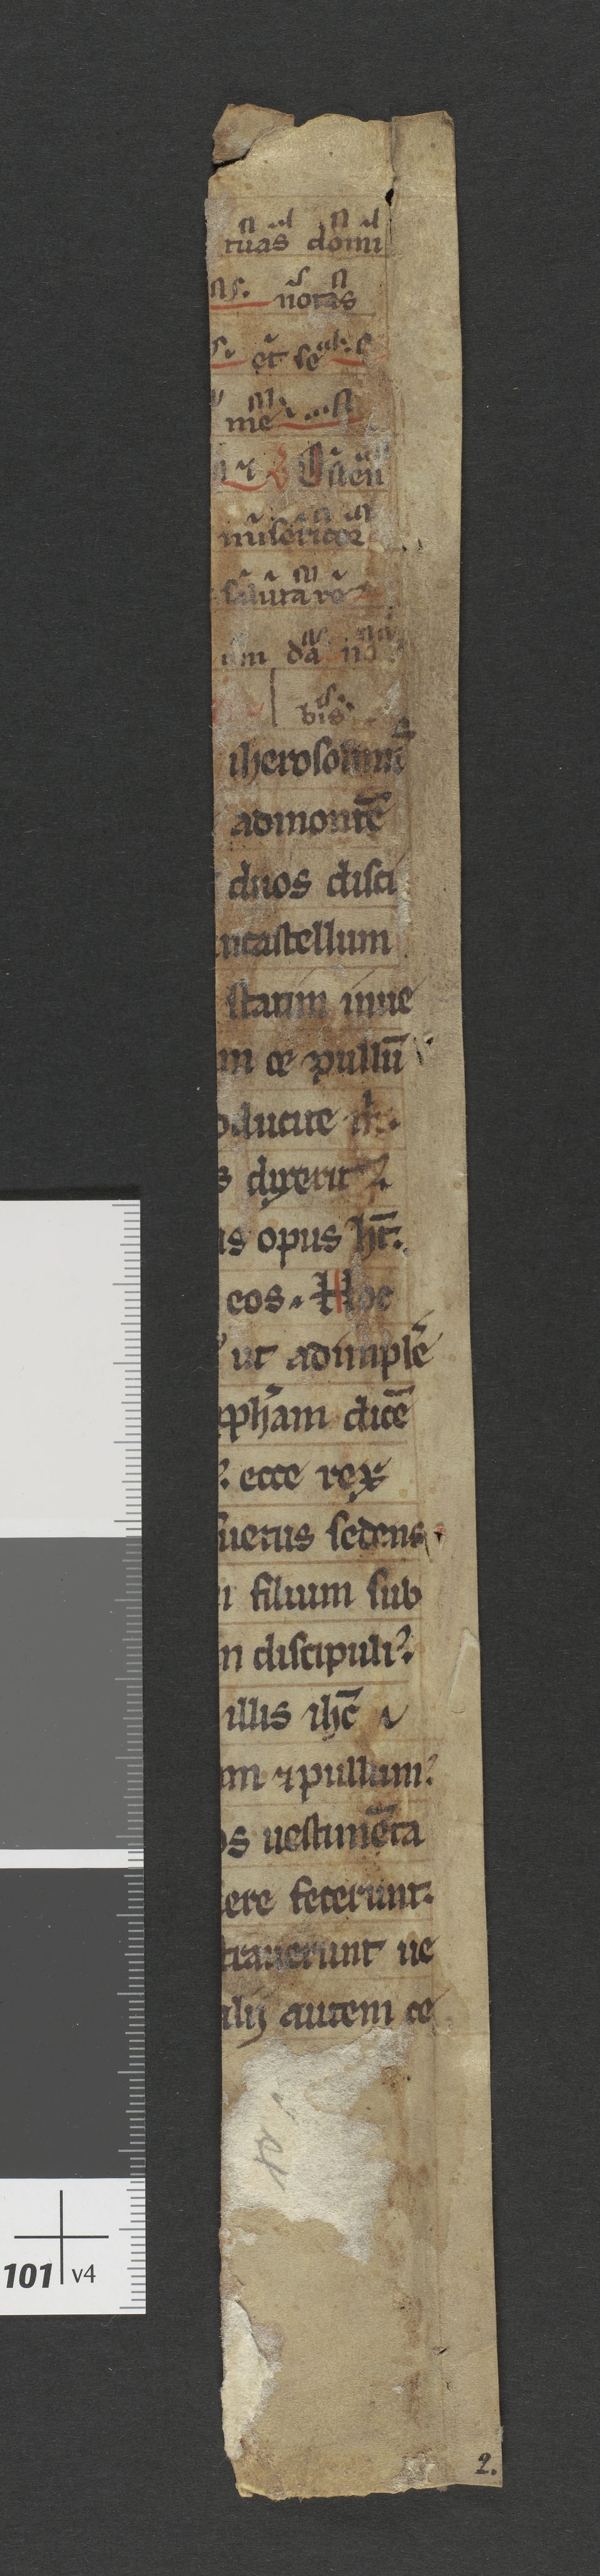 tuas domi
notas
et se
me
Osten
misericor
saluta re
um da no
bis
iherosolimis
admontē
duos disci
ncastellum
statim inue
m ce pullū
oducite m.
s dixerit
is opus ht̄.
eos. Hoc
ut adimplē
pph̄am dicē
ecce rex
suetus sedens
i filium sub
n discipuli
illis ihc̄
am ⁊pullum
os uestimēta
ere fecerunt.
trauerunt ue
alij autem ce
2.
101 v4